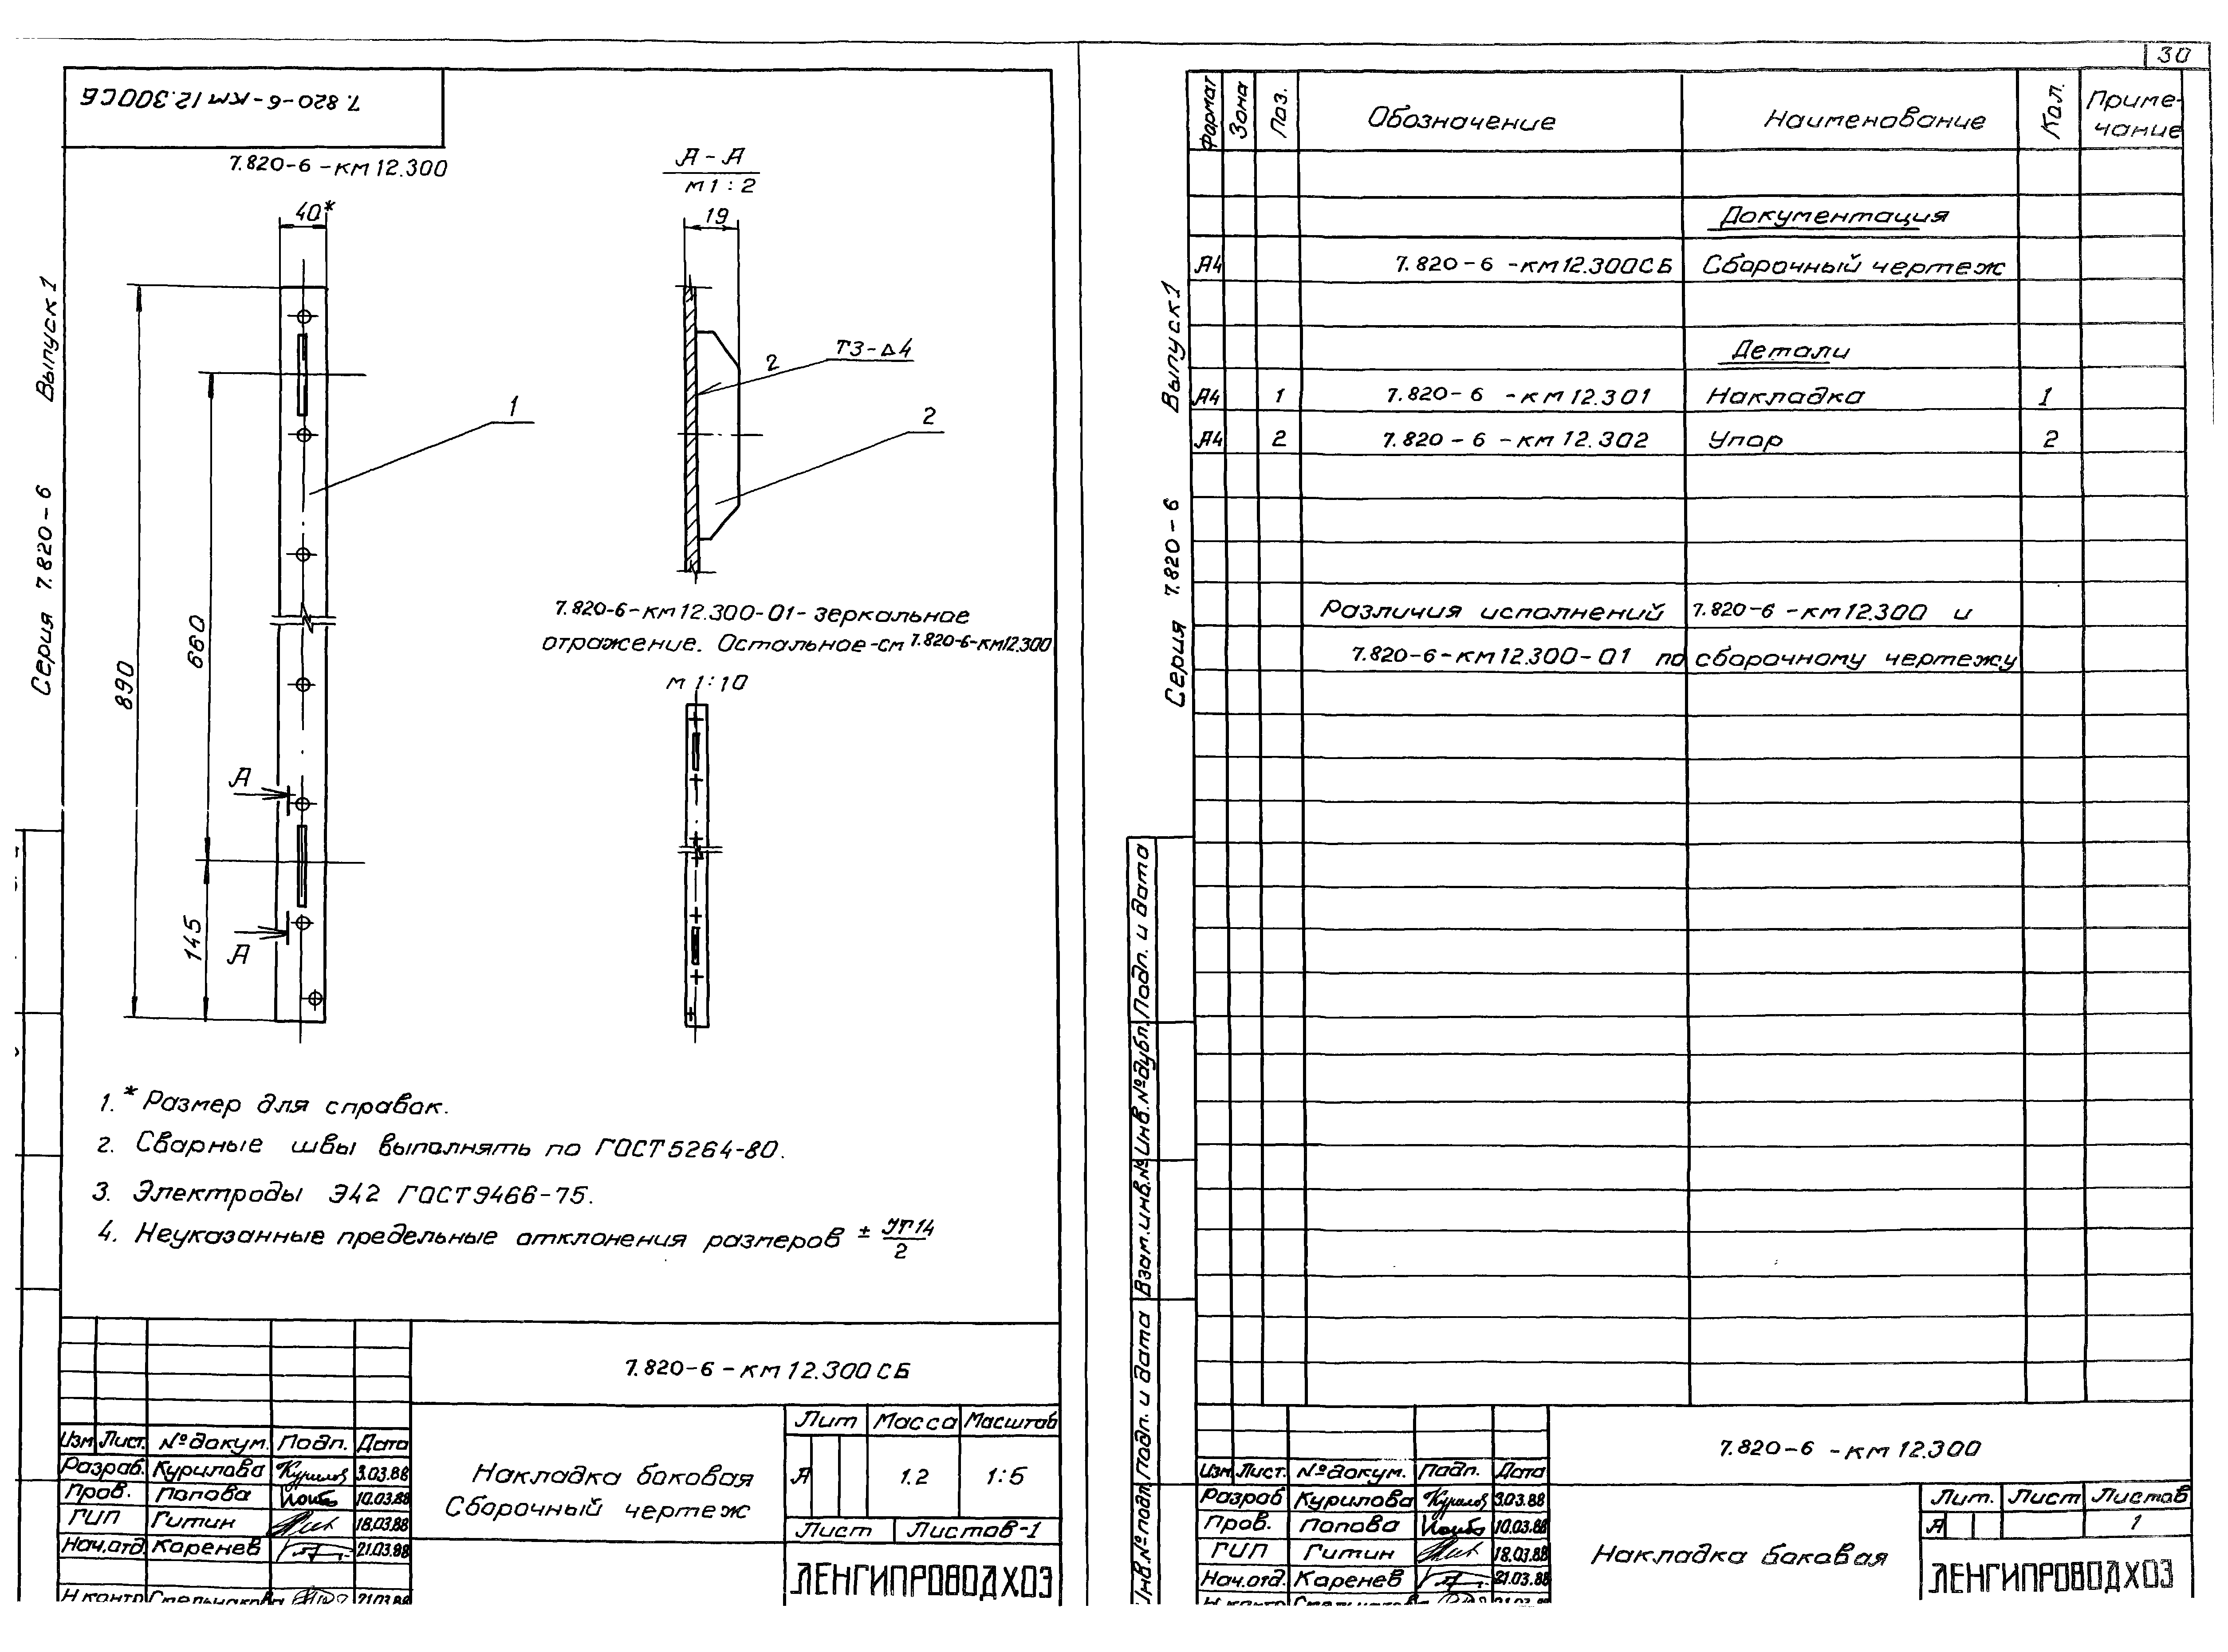 30
7.820-6-км12.300СБ
7.820-6-км12.300
А-А
м1:2
40*
19
2
Т3-Δ4
1
2
890
660
145
А
А
7.820-6-км12.300-01-зеркальное
отражение. Остальное-см 7.820-6-км12.300
м 1:10
Серия 7.820-6 Выпуск1
1.* Размер для справок.
2. Сварные швы выполнять по ГОСТ5264-80.
3. Электроды Э42 ГОСТ9466-75.
4. Неуказанные предельные отклонения размеров ± УТ14/2
7.820-6-км12.300СБ
Накладка боковая
Сборочный чертеж
Лит Масса Масштаб
А 1.2 1:5
Лист Листов-1
ЛЕНГИПРОВОДХОЗ
Изм Лист. №докум. Подп. Дата
Разраб. Курилова 3.03.88
Пров. Попова 10.03.88
ГИП Гитин 18.03.88
Нач.отд Коренев 21.03.88
Н контр 21.03.88
Серия 7.820-6 Выпуск1
Формат Зона Поз. Обозначение Наименование Кол. Приме-
чание
Документация
А4 7.820-6-км12.300СБ Сборочный чертеж
Детали
А4 1 7.820-6-км12.301 Накладка 1
А4 2 7.820-6-км12.302 Упор 2
Различия исполнений 7.820-6-км12.300 и
7.820-6-км12.300-01 по сборочному чертежу
Инв.№подл. Подп. и дата Взам.инв.№ Инв.№дубл. Подп. и дата
7.820-6-км12.300
Накладка боковая
Лит. Лист Листов
А 1
ЛЕНГИПРОВОДХОЗ
Изм Лист. №докум. Подп. Дата
Разраб Курилова 3.03.88
Пров. Попова 10.03.88
ГИП Гитин 18.03.88
Нач.отд. Коренев 21.03.88
Н контр 21.03.88